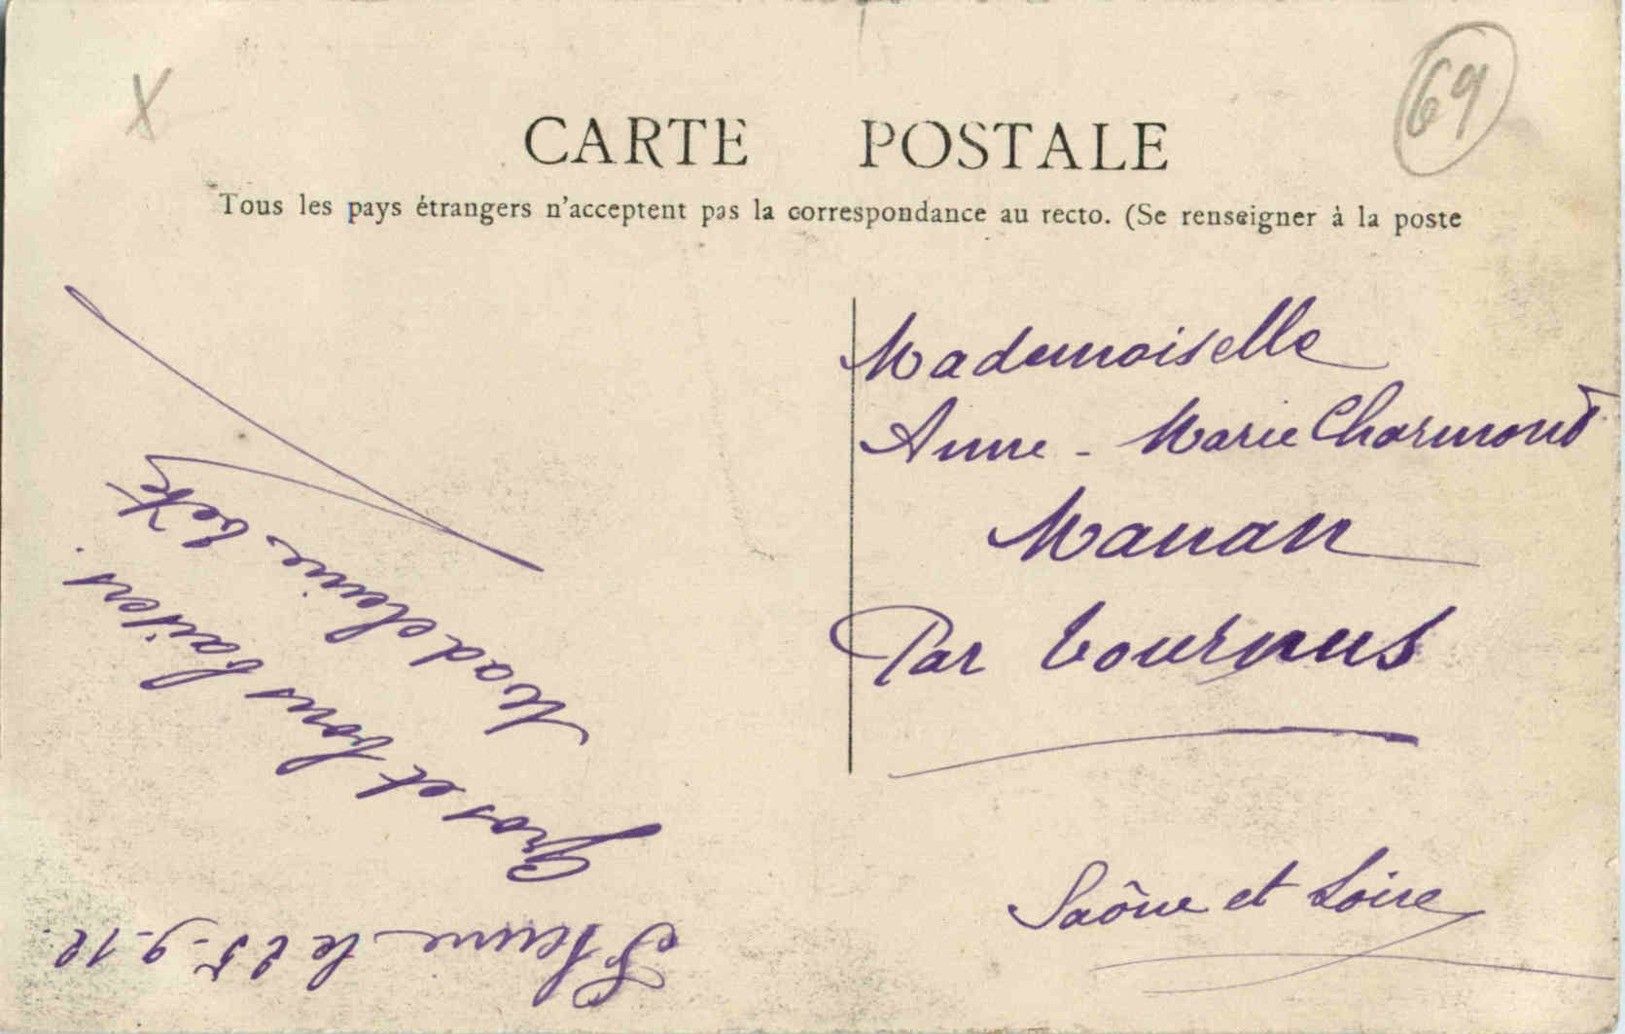 X
69
CARTE POSTALE
Tous les pays étrangers n'acceptent pas la correspondance au recto. (Se renseigner à la poste
Mademoiselle
Anne - Marie Charmond
Manan
Par Tournus
Saône et Loire
le 25-9-12
Gros et bons baisers.
Madeleine